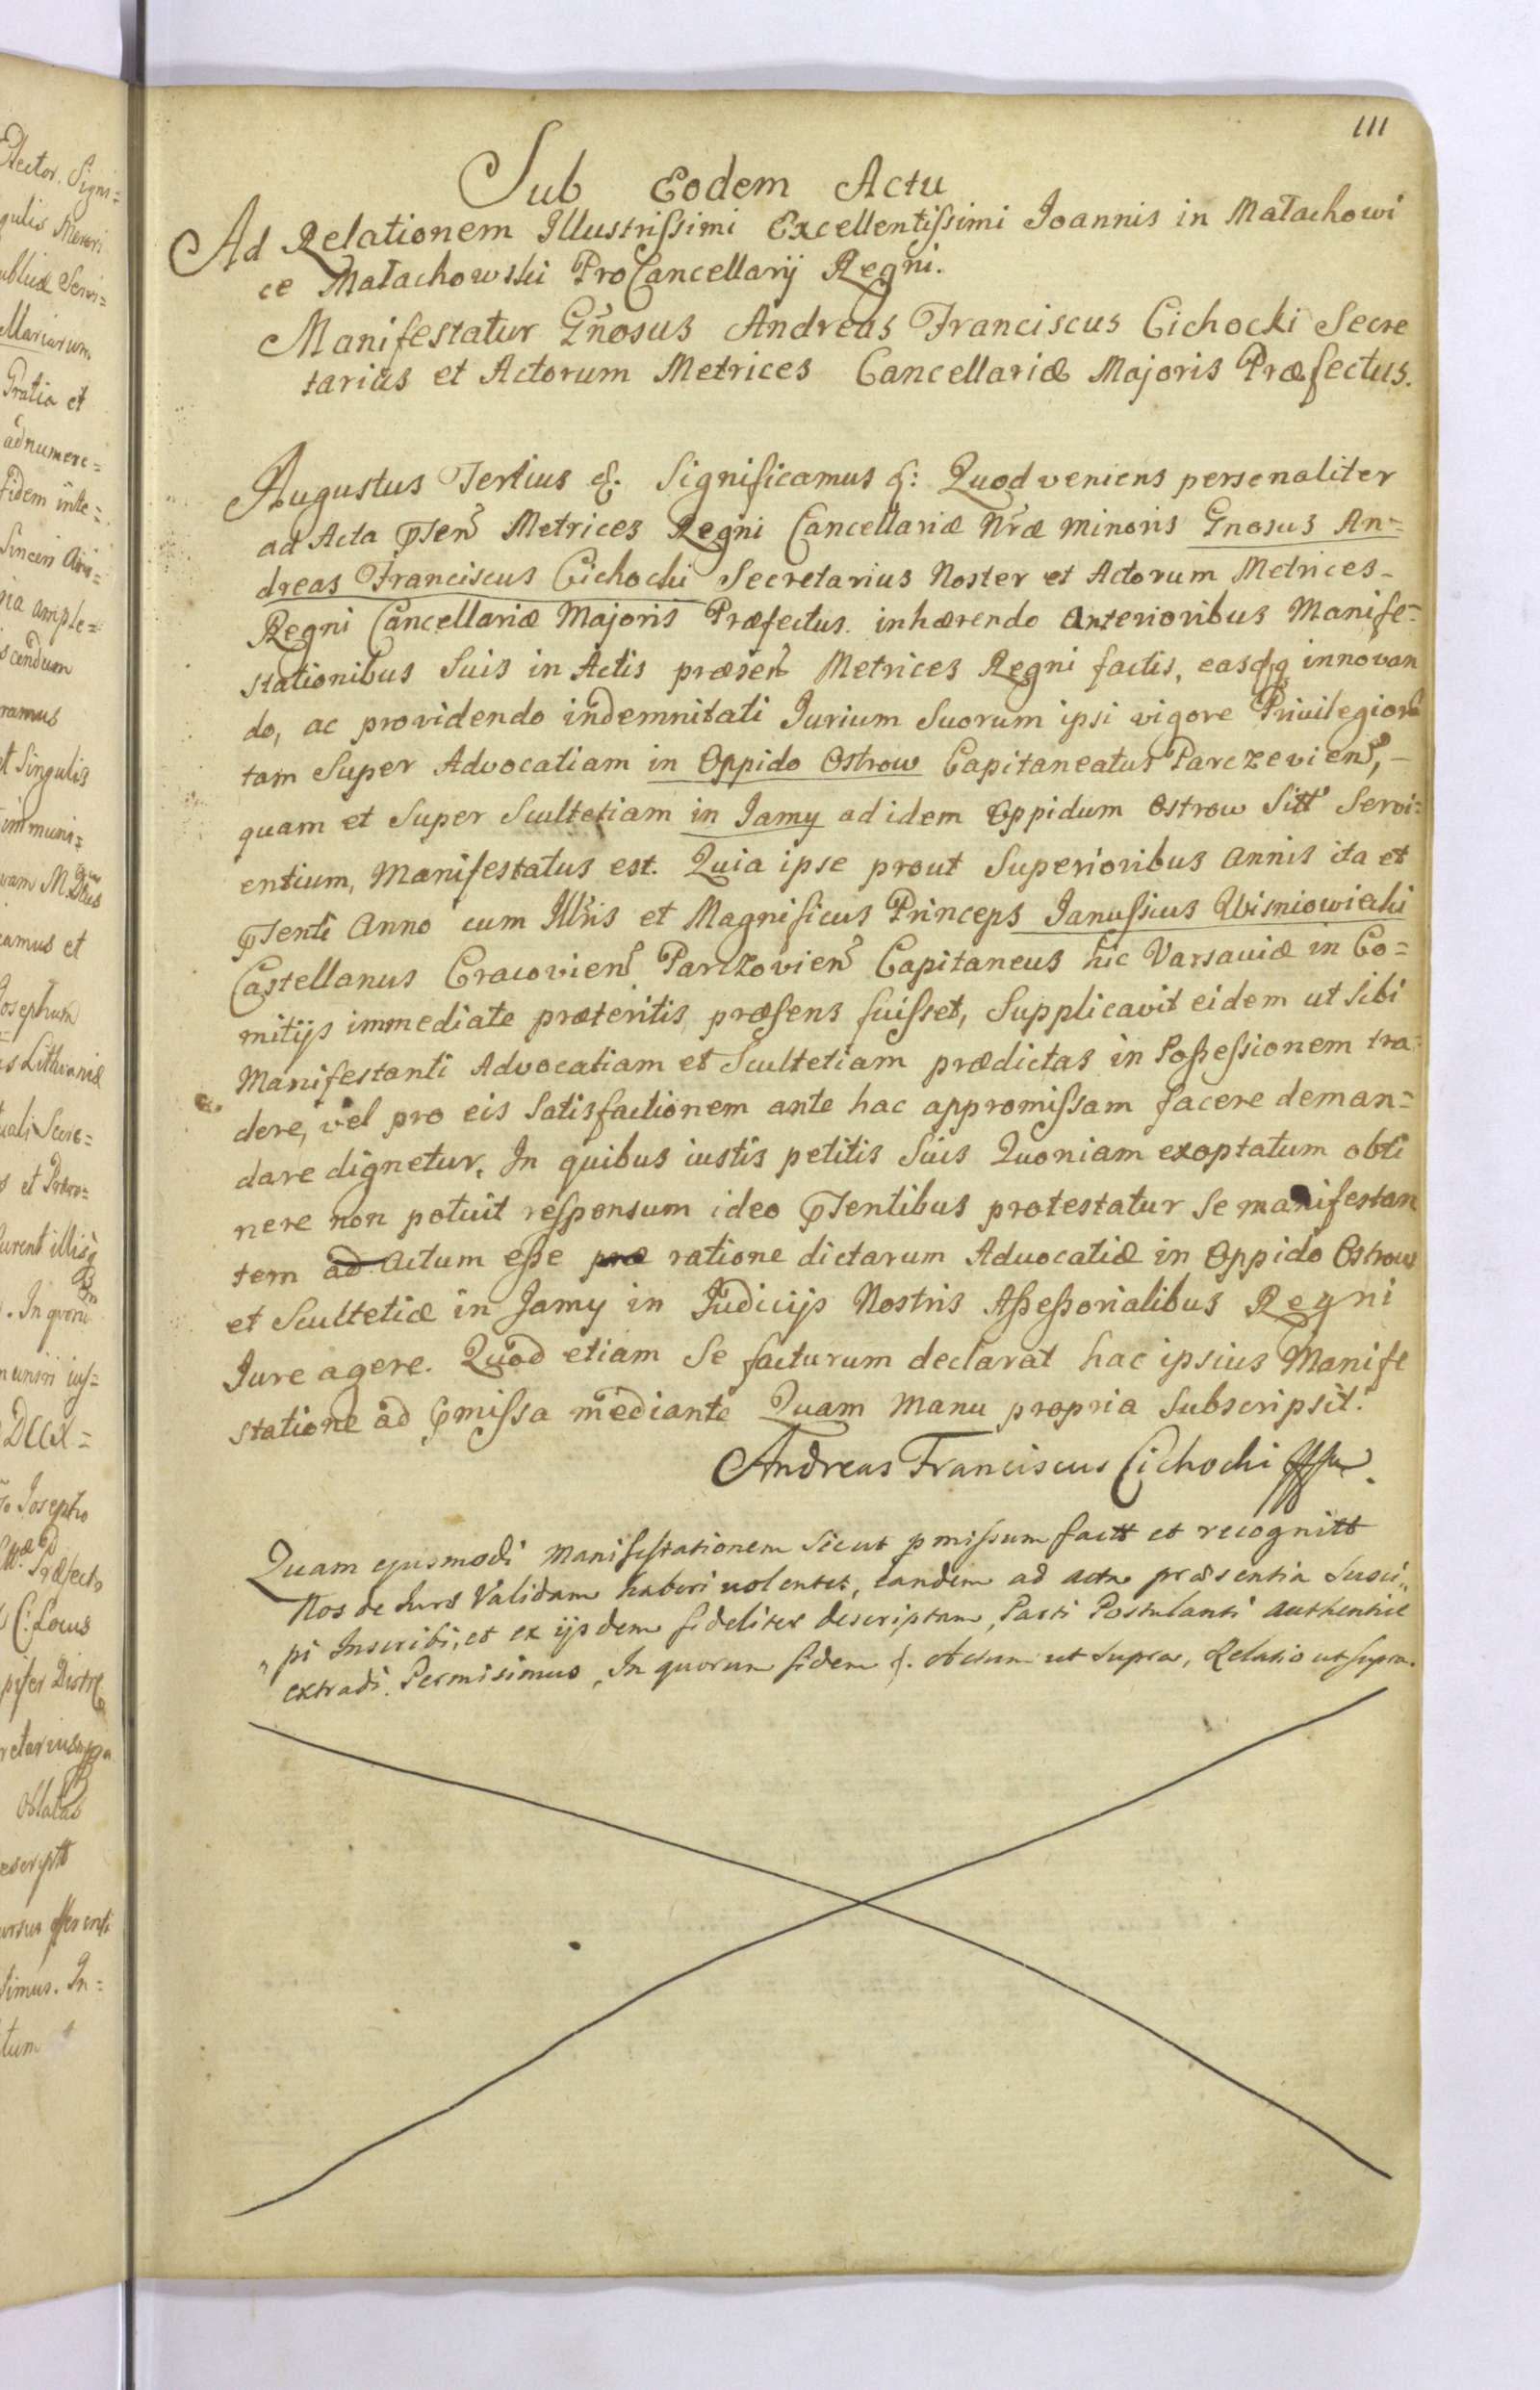 111
Sub Eodem Actu
Ad Relationem Illustrissimi Excellentissimi Joannis in Małachowi
ce Małachowski ProCancellarij Regni.
Manifestatur Gñosus Andreas Franciscus Cichocki Secre
tarius et Actorum Metrices Cancellariæ Majoris Præfectus.
Augustus Tertius &. Significamus &: Quod veniens personaliter
ad Acta pñsen Metrices Regni Cancellariæ Nræ minoris Gnosus An=
dreas Franciscus Cichocki Secretarius Noster et Actorum Metrices
Regni Cancellariæ Majoris Præfectus inhærendo Anterioribus Manife=
stationibus Suis in Actis præsen Metrices Regni factis, easq innovan
do, ac providendo indemnitati Jurium Suorum ipsi vigore Privilegior
tam Super Advocatiam in Oppido Ostrow Capitaneatus Parczevien,
quam et Super Scultetiam in Jamy ad idem Oppidum Ostrow Sitt Servi=
entium, Manifestatus est. Quia ipse prout Superioribus Annis ita et
pñsenti Anno cum Illris et Magnificus Princeps Janussius Wisniowiecki
Castellanus Cracovien Parczovien Capitaneus hic Varsaviæ in Co=
mitijs immediate præteritis præsens fuisset, Supplicavit eidem ut Sibi
Manifestanti Advocatiam et Scultetiam prædictas in Possessionem tra=
dere, vel pro eis Satisfactionem ante hac appromissam facere deman=
dare dignetur. In quibus iustis petitis Suis Quoniam exoptatum obti
nere non potuit responsum ideo pñsentibus protestatur Se manifestan
tem ad actum esse præ ratione dictarum Advocatiæ in Oppido Ostrow
et Scultetiæ in Jamy in Judicijs Nostris Assessorialibus Regni
Jure agere. Quod etiam Se facturum declarat hac ipsius Manife
statione ad pmissa mediante Quam Manu propria Subscripsit.
Andreas Franciscus Cichocki
Quam ejusmodi Manifestationem Sicut pmissum factt et recognitt
Nos de Jure Validam haberi volentes, eandem ad acta præsentia Susci=
pi Inscribi, et ex ijsdem fideliter descriptam, Parti Postulanti authentice
extradi Permisimus, In quorum fidem &. Actum ut Supra, Relatio ut Supra.